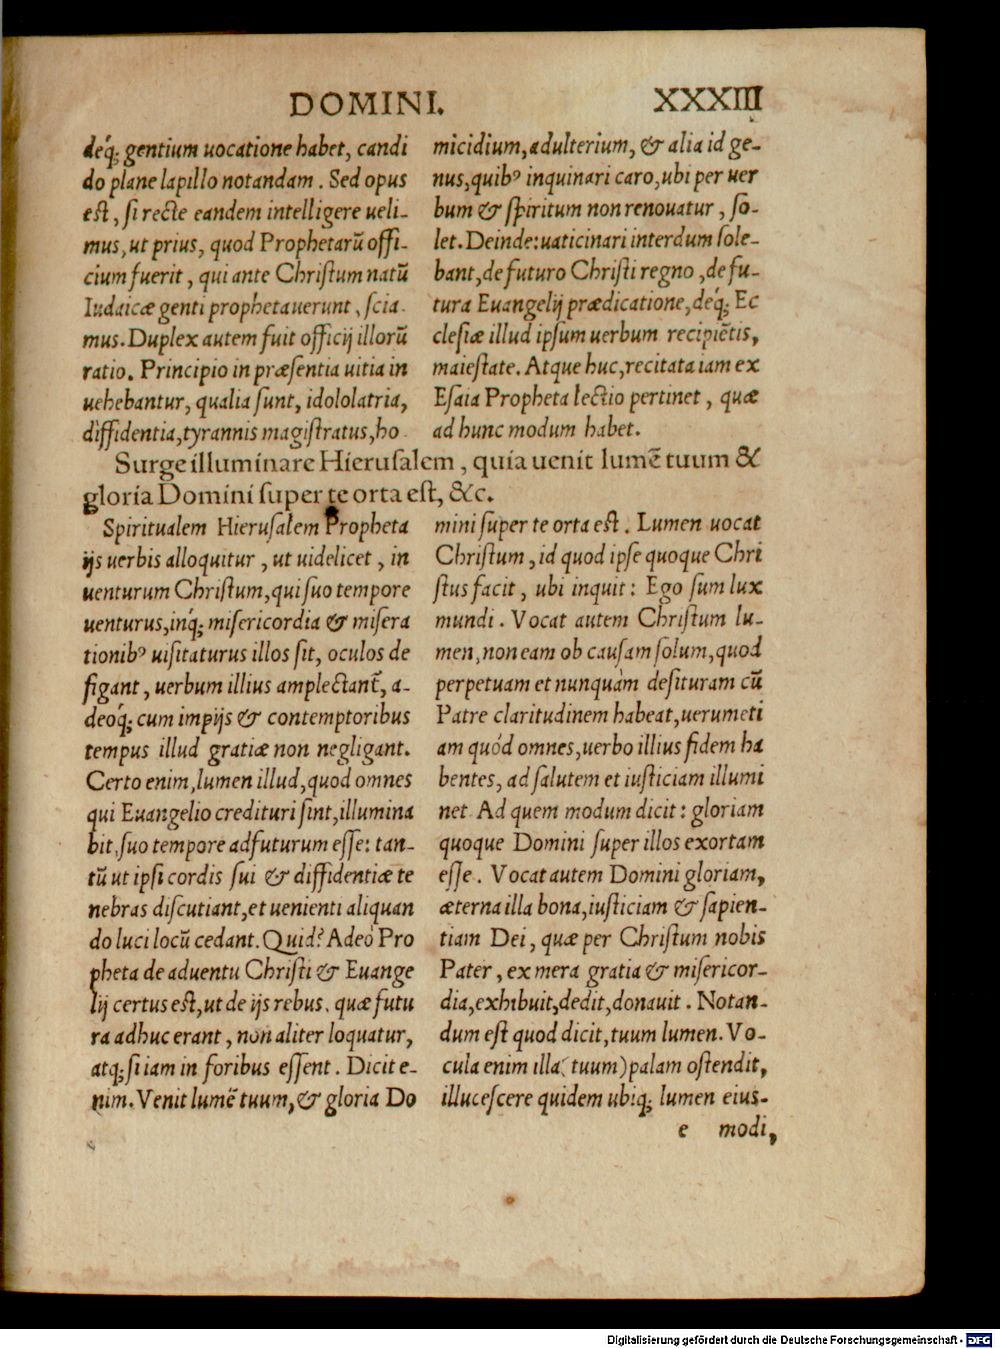 DOMINI. XXXIII
deq́; gentium uocatione habet, candi
do plane lapillo notandam. Sed opus
est, si recte eandem intelligere ueli-
mus, ut prius, quod Prophetarũ offi-
cium fuerit, qui ante Christum natũ
Iudaicæ genti prophetauerunt, scia
mus. Duplex autem fuit officij illorũ
ratio. Principio in præsentia uitia in
uehebantur, qualia sunt, idololatria,
diffidentia, tyrannis magistratus, ho
micidium, adulterium, & alia id ge-
nus, quibꝰ inquinari caro, ubi per uer
bum & spiritum non renouatur, so-
let. Deinde: uaticinari interdum sole-
bant, de futuro Christi regno, de fu-
tura Euangelij prædicatione, deq́; Ec
clesiæ illud ipsum uerbum recipiẽtis,
maiestate. Atque huc, recitata iam ex
Esaia Propheta lectio pertinet, quæ
ad hunc modum habet.
Surge illuminare Hierusalem, quia uenit lumẽ tuum &
gloria Domini super te orta est, &c.
Spiritualem Hierusalem Propheta
ijs uerbis alloquitur, ut uidelicet, in
uenturum Christum, qui suo tempore
uenturus, inq́; misericordia & misera
tionibꝰ uisitaturus illos sit, oculos de
figant, uerbum illius amplectant᷑, a-
deoq́; cum impijs & contemptoribus
tempus illud gratiæ non negligant.
Certo enim, lumen illud, quod omnes
qui Euangelio credituri sint, illumina
bit, suo tempore adfuturum esse: tan-
tũ ut ipsi cordis sui & diffidentiæ te
nebras discutiant, et uenienti aliquan
do luci locũ cedant. Quid? Adeò Pro
pheta de aduentu Christi & Euange
lij certus est, ut de ijs rebus, quæ futu
ra adhuc erant, non aliter loquatur,
atq; si iam in foribus essent. Dicit e-
nim. Venit lumẽ tuum, & gloria Do
mini super te orta est. Lumen uocat
Christum, id quod ipse quoque Chri
stus facit, ubi inquit: Ego sum lux
mundi. Vocat autem Christum lu-
men, non eam ob causam solum, quod
perpetuam et nunquàm desituram cũ
Patre claritudinem habeat, uerumeti
am quòd omnes, uerbo illius fidem ha
bentes, ad salutem et iusticiam illumi
net. Ad quem modum dicit: gloriam
quoque Domini super illos exortam
esse. Vocat autem Domini gloriam,
æterna illa bona, iusticiam & sapien-
tiam Dei, quæ per Christum nobis
Pater, ex mera gratia & misericor-
dia, exhibuit, dedit, donauit. Notan-
dum est quod dicit, tuum lumen. Vo-
cula enim illa (tuum) palam ostendit,
illucescere quidem ubiq; lumen eius-
e modi,
Digitalisierung gefördert durch die Deutsche Forschungsgemeinschaft - DFG